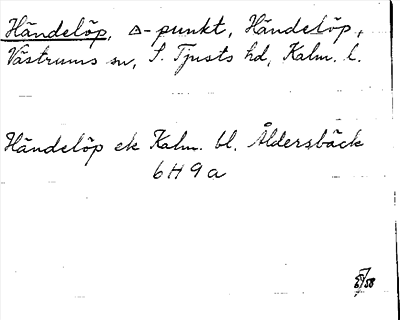 Händelöp, △-punkt, Händelöp,
Västrums sn, S. Tjusts hd, Kalm. l.
Händelöp ek Kalm. bl. Åldersbäck
6H9a
58